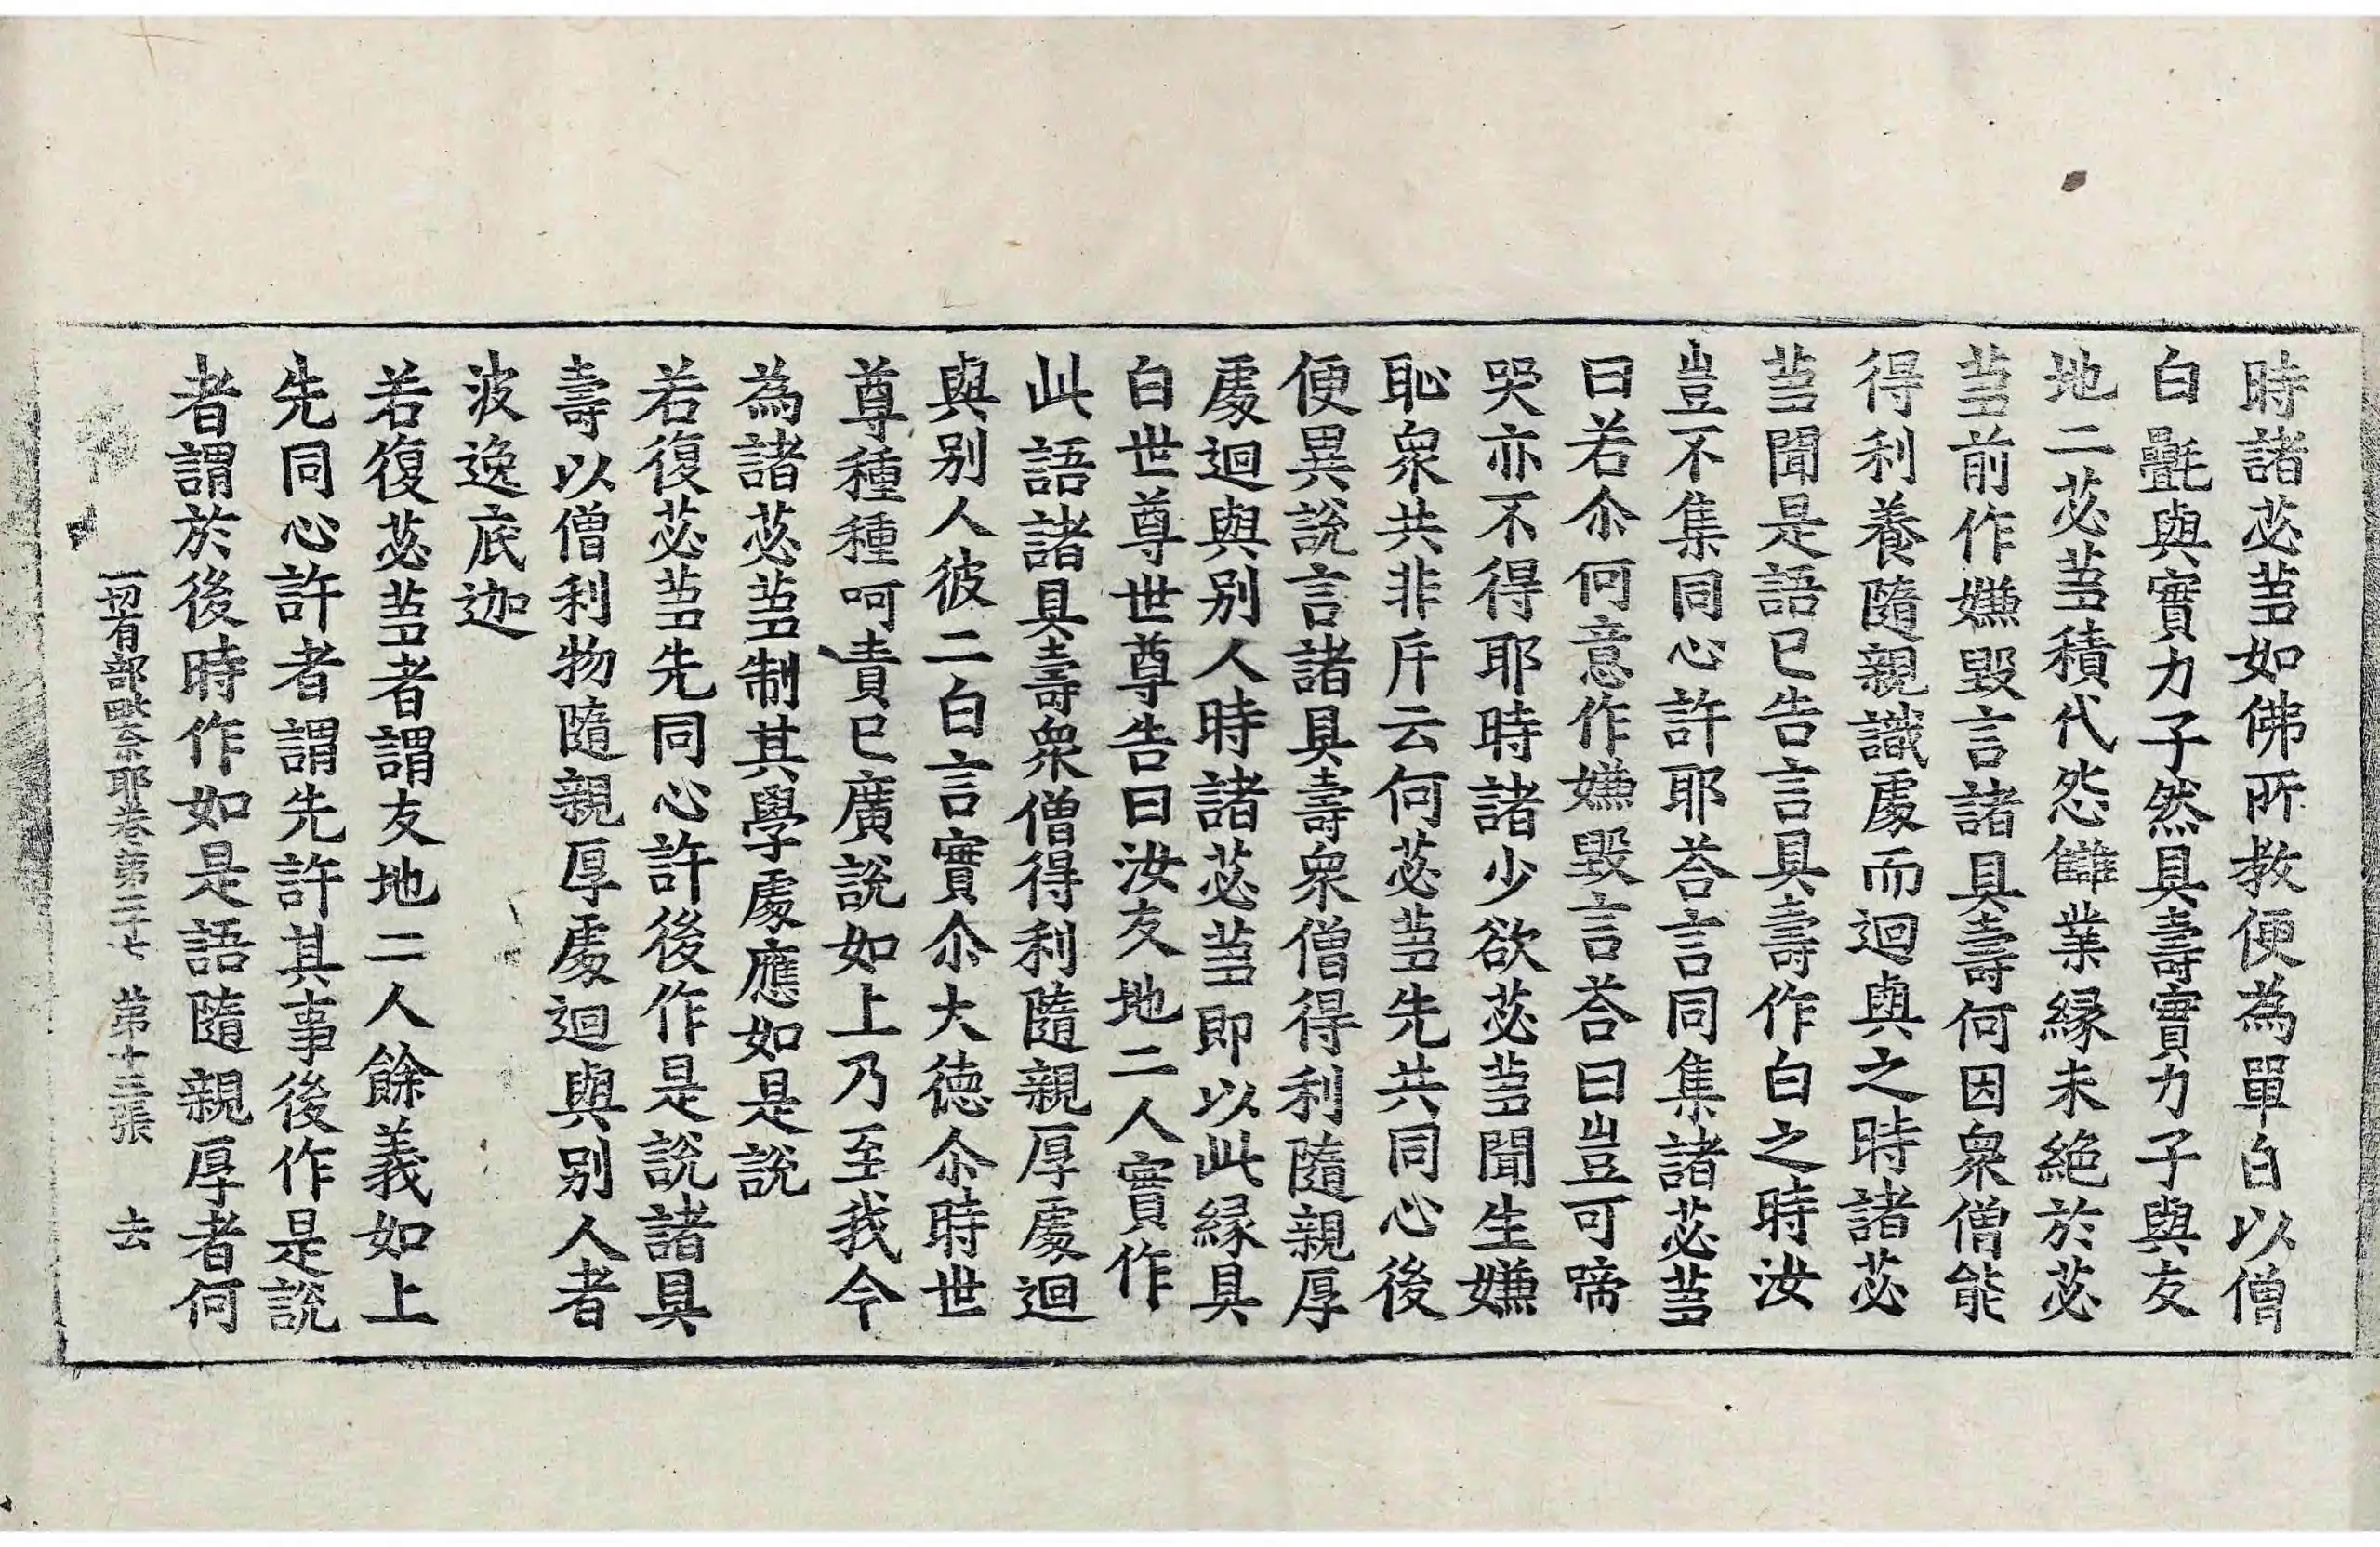 時諸苾蒭如佛所教便為單白以僧
白㲲與實力子然具壽實力子與友
地二苾蒭積代怨讎業縁未絶於苾
蒭前作嫌毀言諸具壽何因衆僧能
得利養隨親識處而迴與之時諸苾
蒭聞是語已告言具壽作白之時汝
豈不集同心許耶荅言同集諸苾蒭
曰若尒何意作嫌毀言荅曰豈可啼
哭亦不得耶時諸少欲苾蒭聞生嫌
恥衆共非斥云何苾蒭先共同心後
便異說言諸具壽衆僧得利隨親厚
處迴與別人時諸苾蒭即以此縁具
白世尊世尊告曰汝友地二人實作
此語諸具壽衆僧得利隨親厚處迴
與別人彼二白言實尒大德尒時世
尊種種呵責已廣說如上乃至我今
為諸苾蒭制其學處應如是說
若復苾蒭先同心許後作是說諸具
壽以僧利物隨親厚處迴與別人者
波逸底迦
若復苾蒭者謂友地二人餘義如上
先同心許者謂先許其事後作是說
者謂於後時作如是語隨親厚者何
一切有部毗奈耶卷第三十七 第十三張 去